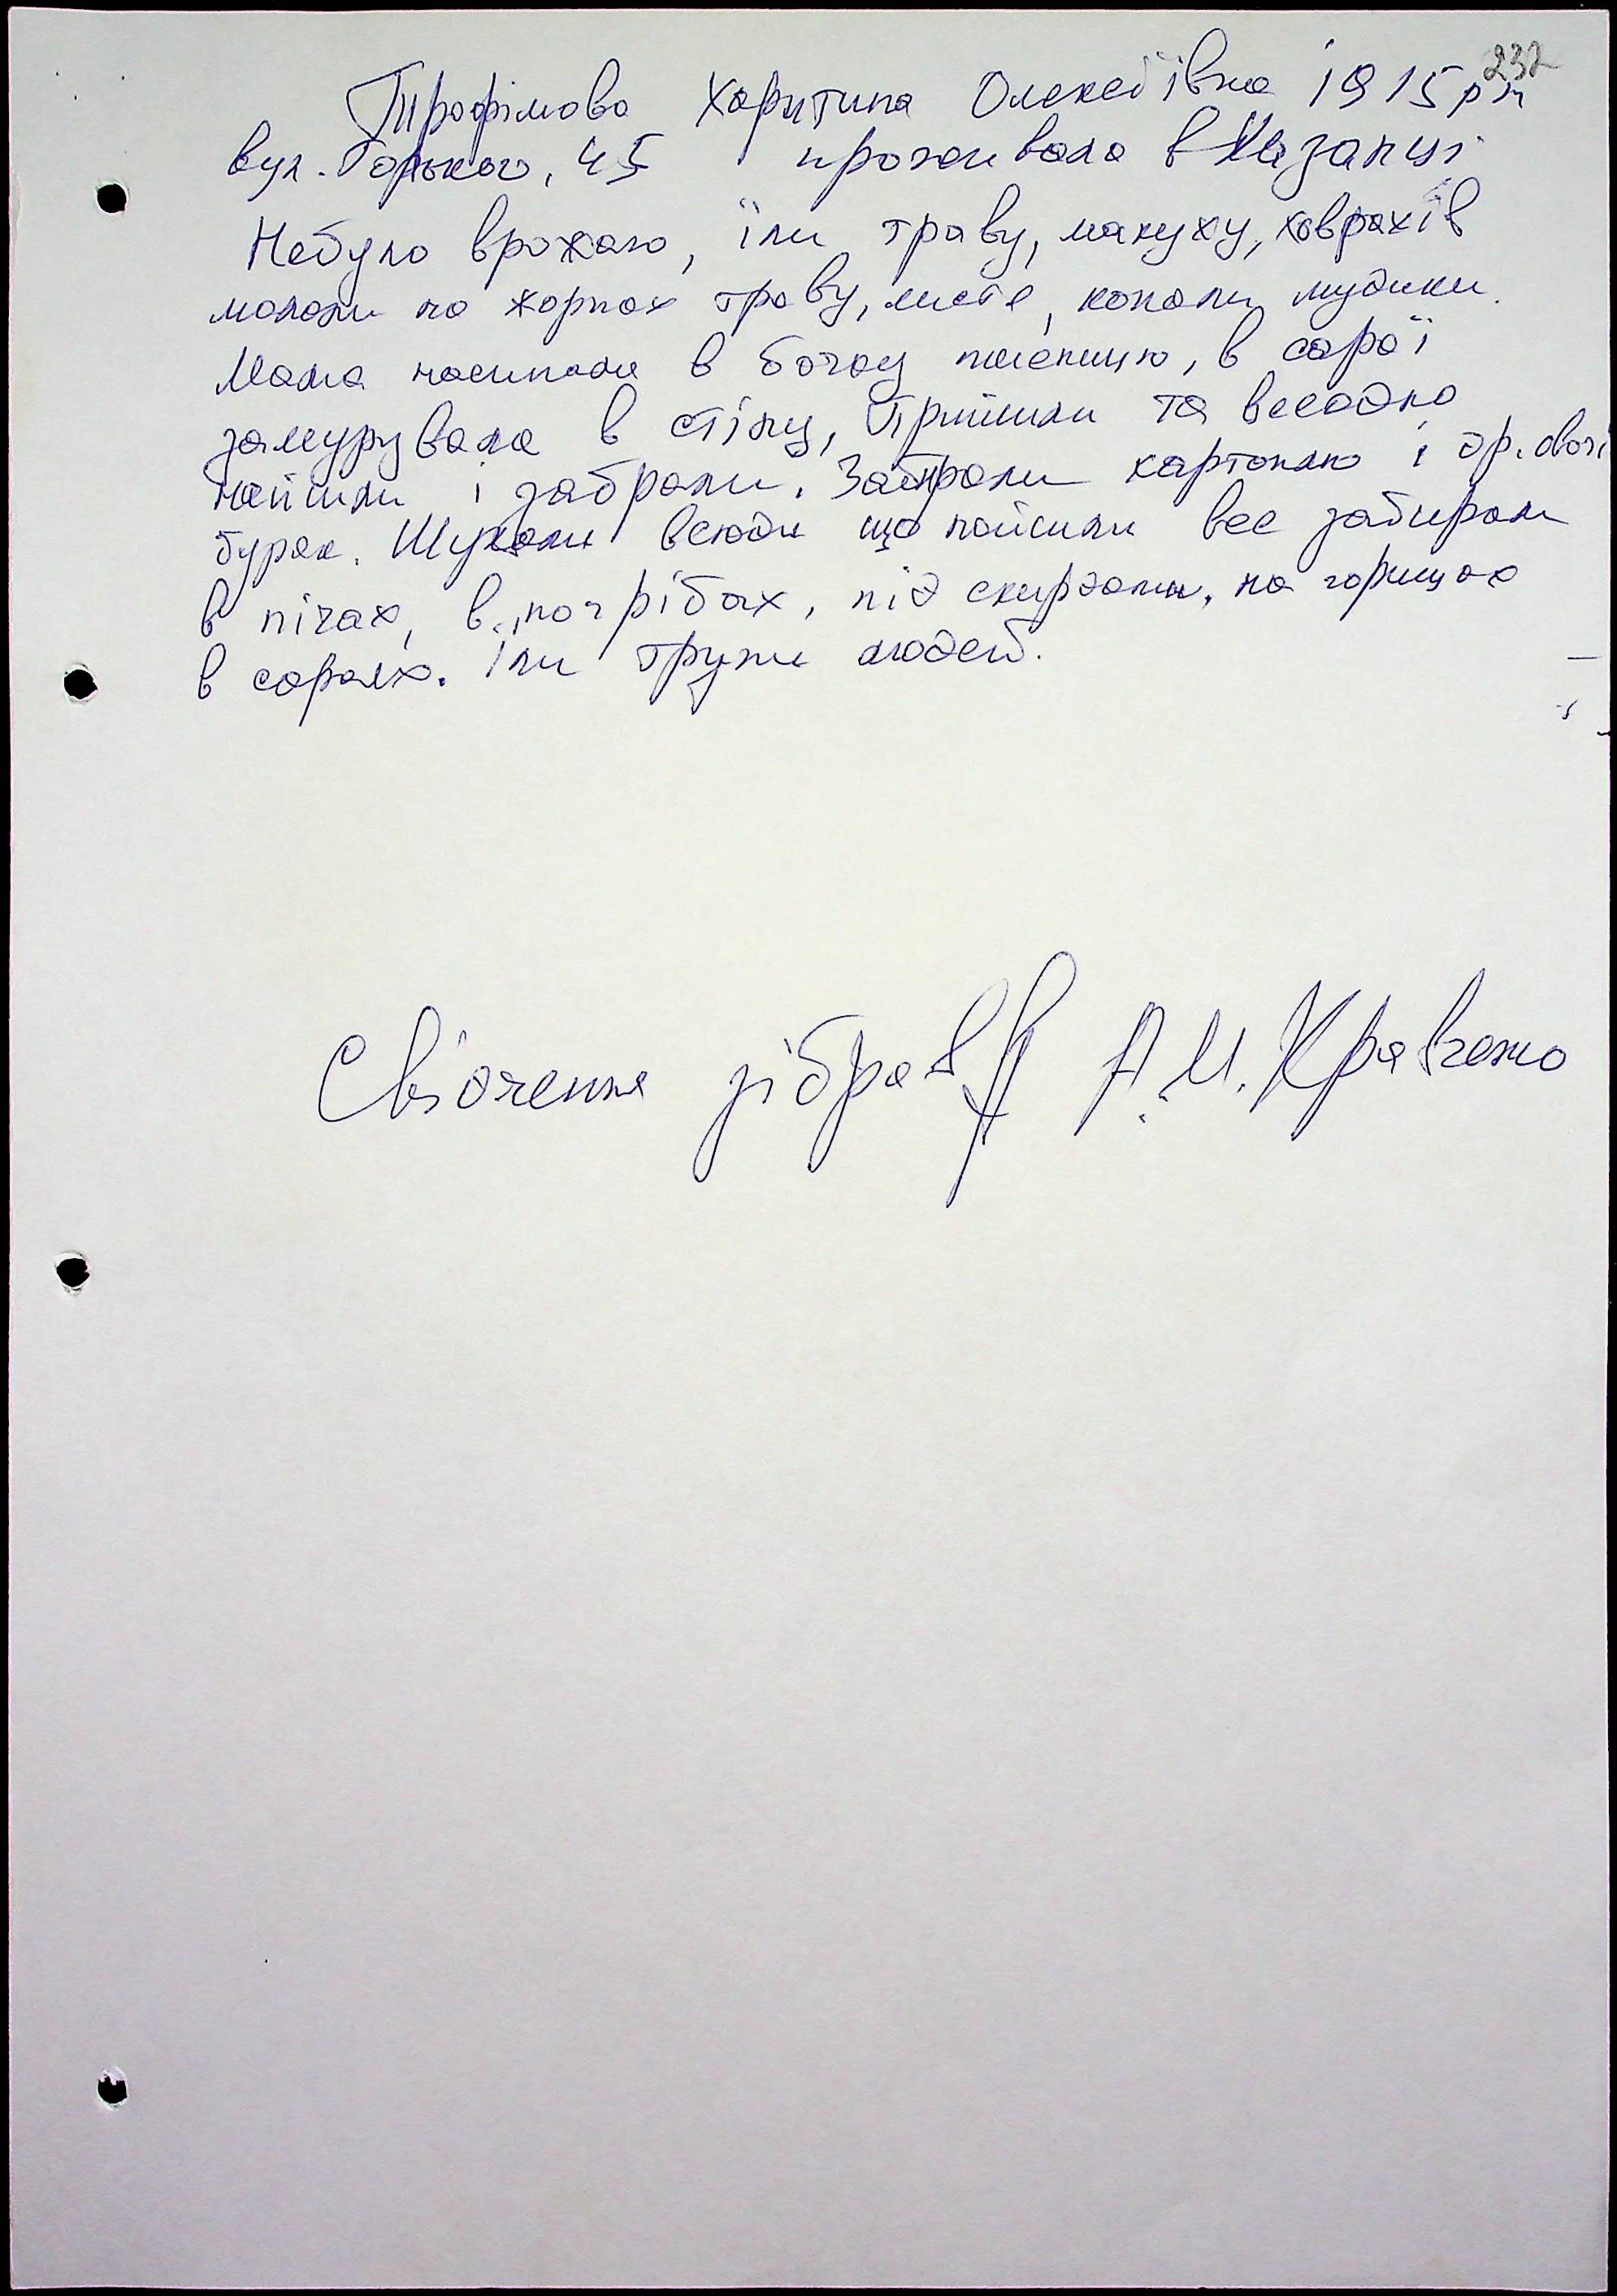 232
Трофімова Харитина Олексіївна 1915 рн
вул. Горького, 45 проживала в Казанці
Небуло врожаю, їли траву, макуху, ховрахів
мололи на жорнах траву, листя, копали мудики.
Мама насипала в бочку пшеницю, в сараї
замурувала в стіну, Прийшли та всеодно
найшли і забрали. Забирали картоплю і др. овочі
буряк. Шукали всюди що найшли все забирали
в пічах, в погрібах, під скирдами, на горищах
в сараях. Їли трупи людей.
Свідчення зібрав А.М. Кравченко